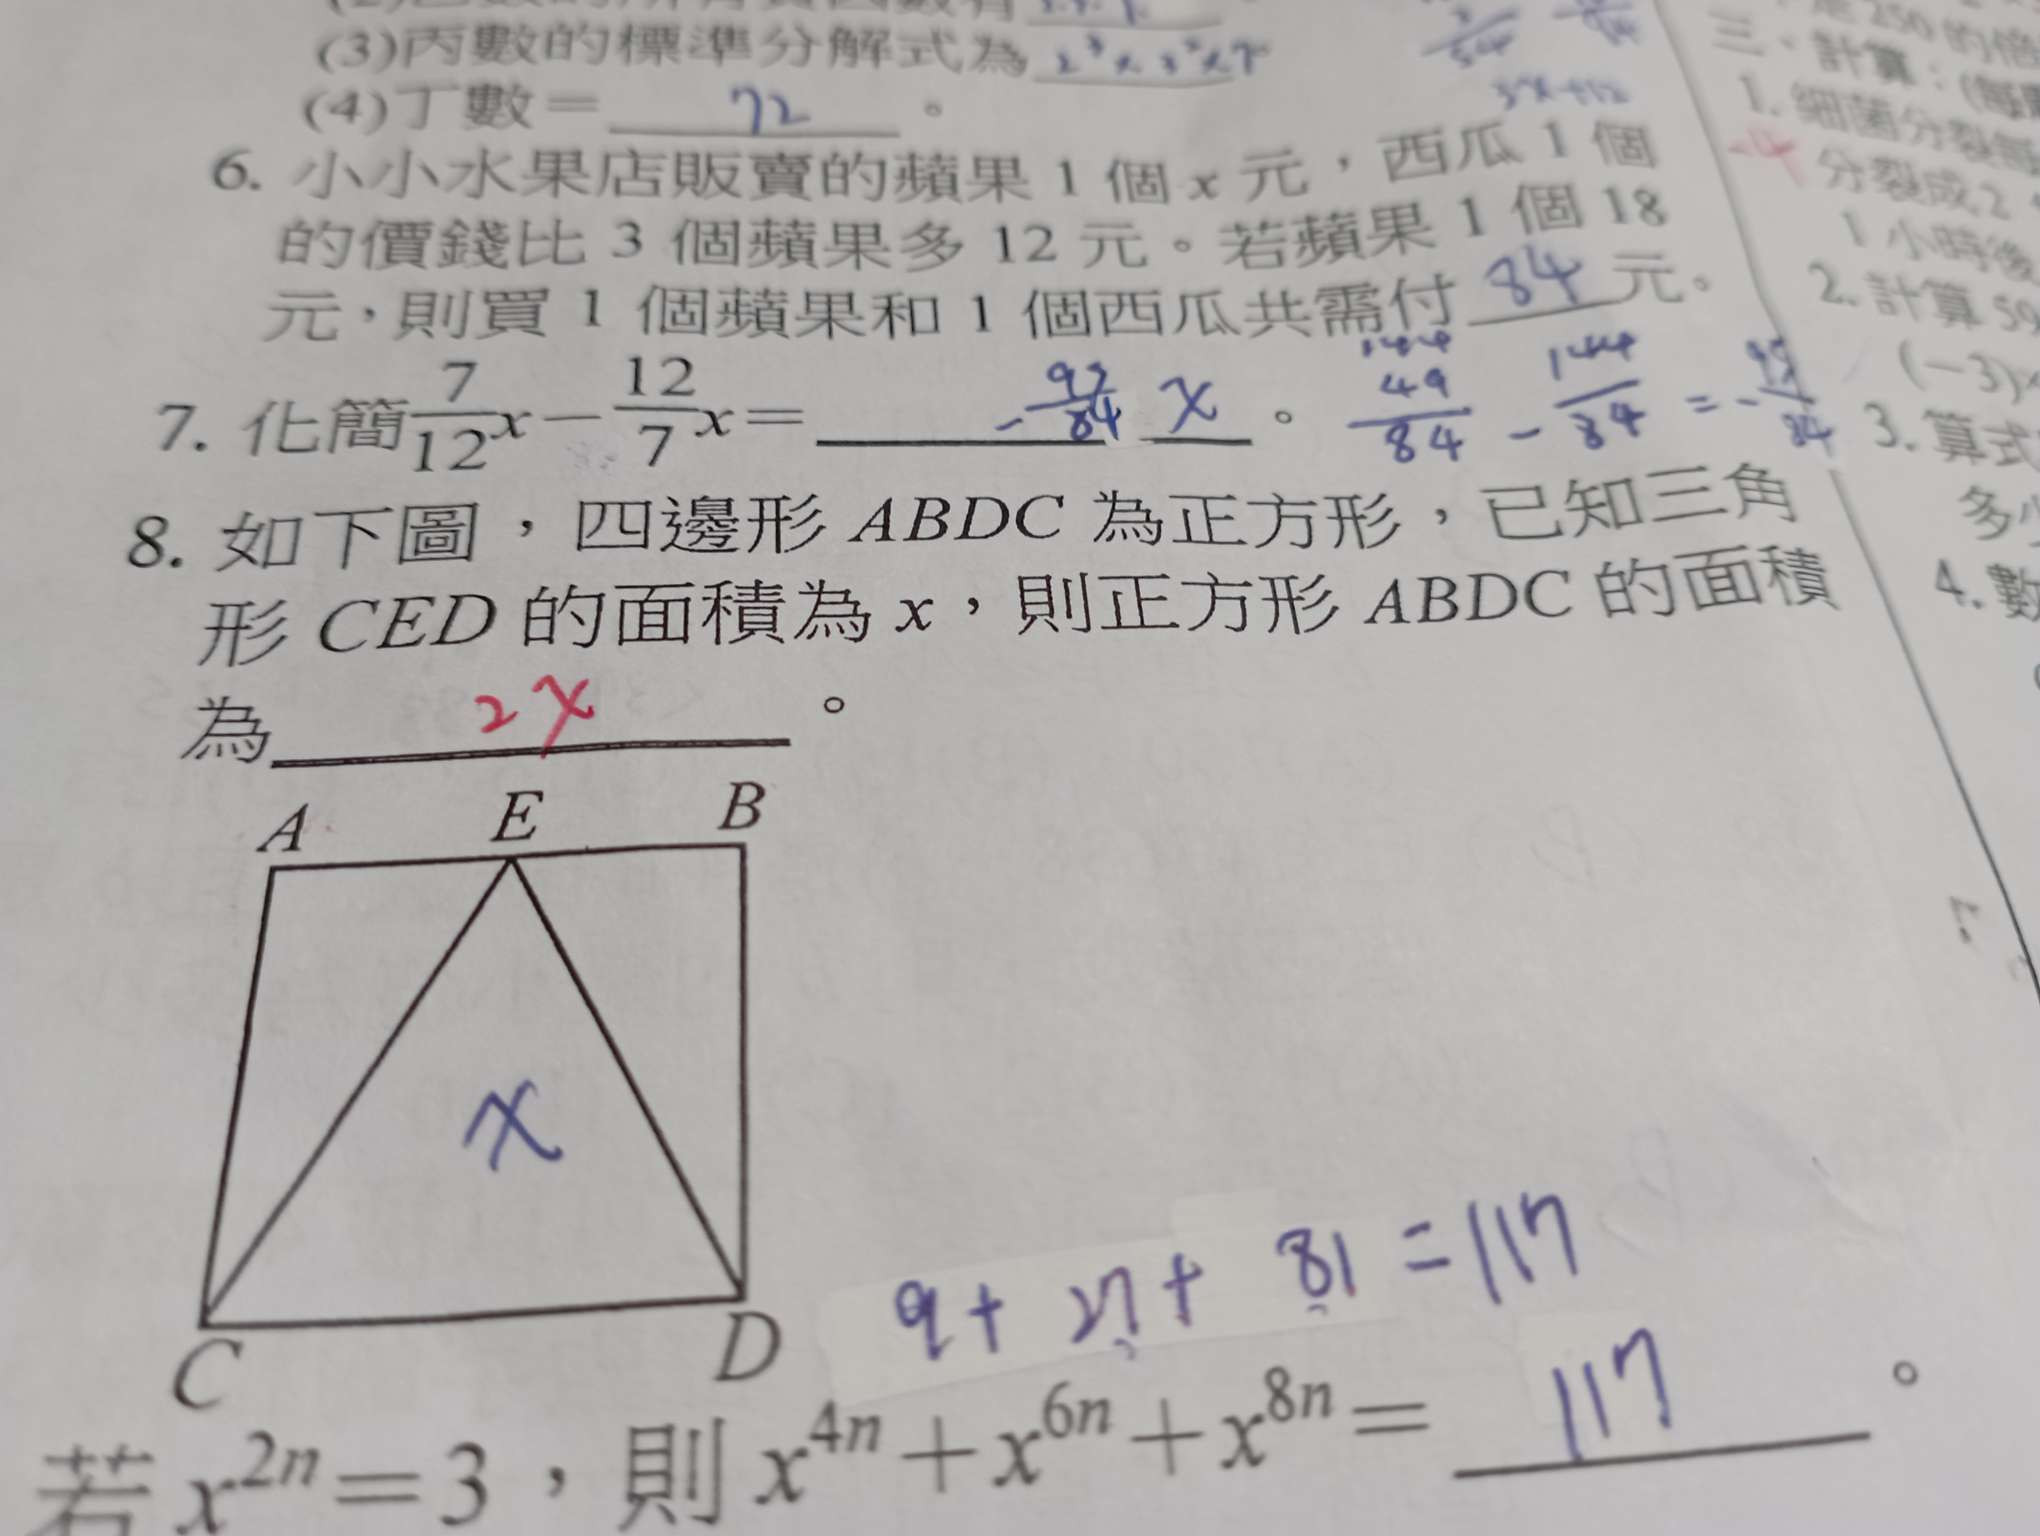 (3)丙數的標準分解式為
(4)丁數= 72 。
6. 小小水果店販賣的蘋果 1 個 x 元，西瓜 1 個
的價錢比 3 個蘋果多 12 元。若蘋果 1 個 18
元，則買 1 個蘋果和 1 個西瓜共需付 84 元。
7. 化簡 7/12 x − 12/7 x = − 95/84 x 。
144
49/84 − 144/84 = − 95/84
8. 如下圖，四邊形 ABDC 為正方形，已知三角
形 CED 的面積為 x，則正方形 ABDC 的面積
為 2x 。
A E B
x
C D
9 + 27 + 81 = 117
若 x^{2n} = 3，則 x^{4n} + x^{6n} + x^{8n} = 117 。
三、計算：(每
1. 細菌分裂每
-4
分裂成2
1 小時後
2. 計算 59
(−3)×
3. 算式
多少
4. 數